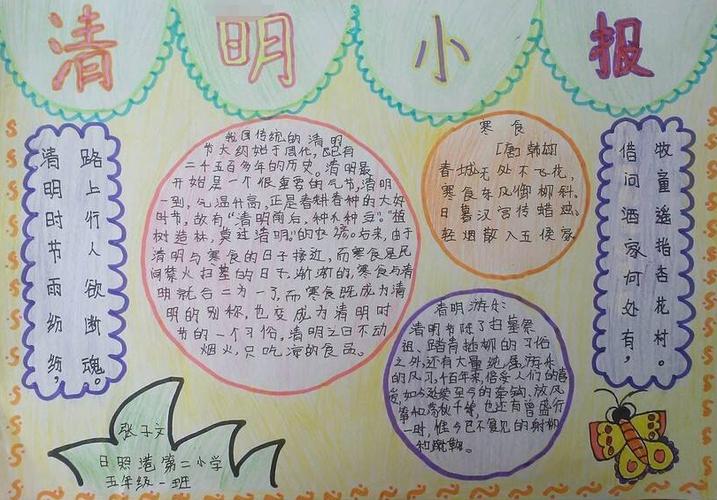 清明小报
清明时节雨纷纷，
路上行人欲断魂。
我国传统的清明
节大纳始于周代，已有
二千五百多年的历史。清明最
开始是一个很重要的气节，清明
一到，气温升高，正是春耕春种的大好
时节，故有“清明前后，种瓜种豆”。“植
树造林，莫过清明”的农谚。后来，由于
清明与寒食的日子接近，而寒食是民
间禁火扫墓的日子，渐渐的，寒食与清
明就合二为一了，而寒食既成为清
明的别称，也变成为清明时
节的一个习俗，清明之日不动
烟火，只吃凉的食品。
寒食
[唐]韩翃
春城无处不飞花，
寒食东风御柳斜。
日暮汉宫传蜡烛，
轻烟散入五侯家
清明游乐
清明节除了扫墓祭
祖、踏青插柳的习俗
之外，还有大量
的风习，千百年来，倍受人们的喜
爱，如今延续至今的牵钩、放风
筝和荡秋千等，也还有曾盛行
一时，但今已不复见的射柳
和蹴鞠。
借问酒家何处有，
牧童遥指杏花村。
张子文
日照港第二小学
五年级一班